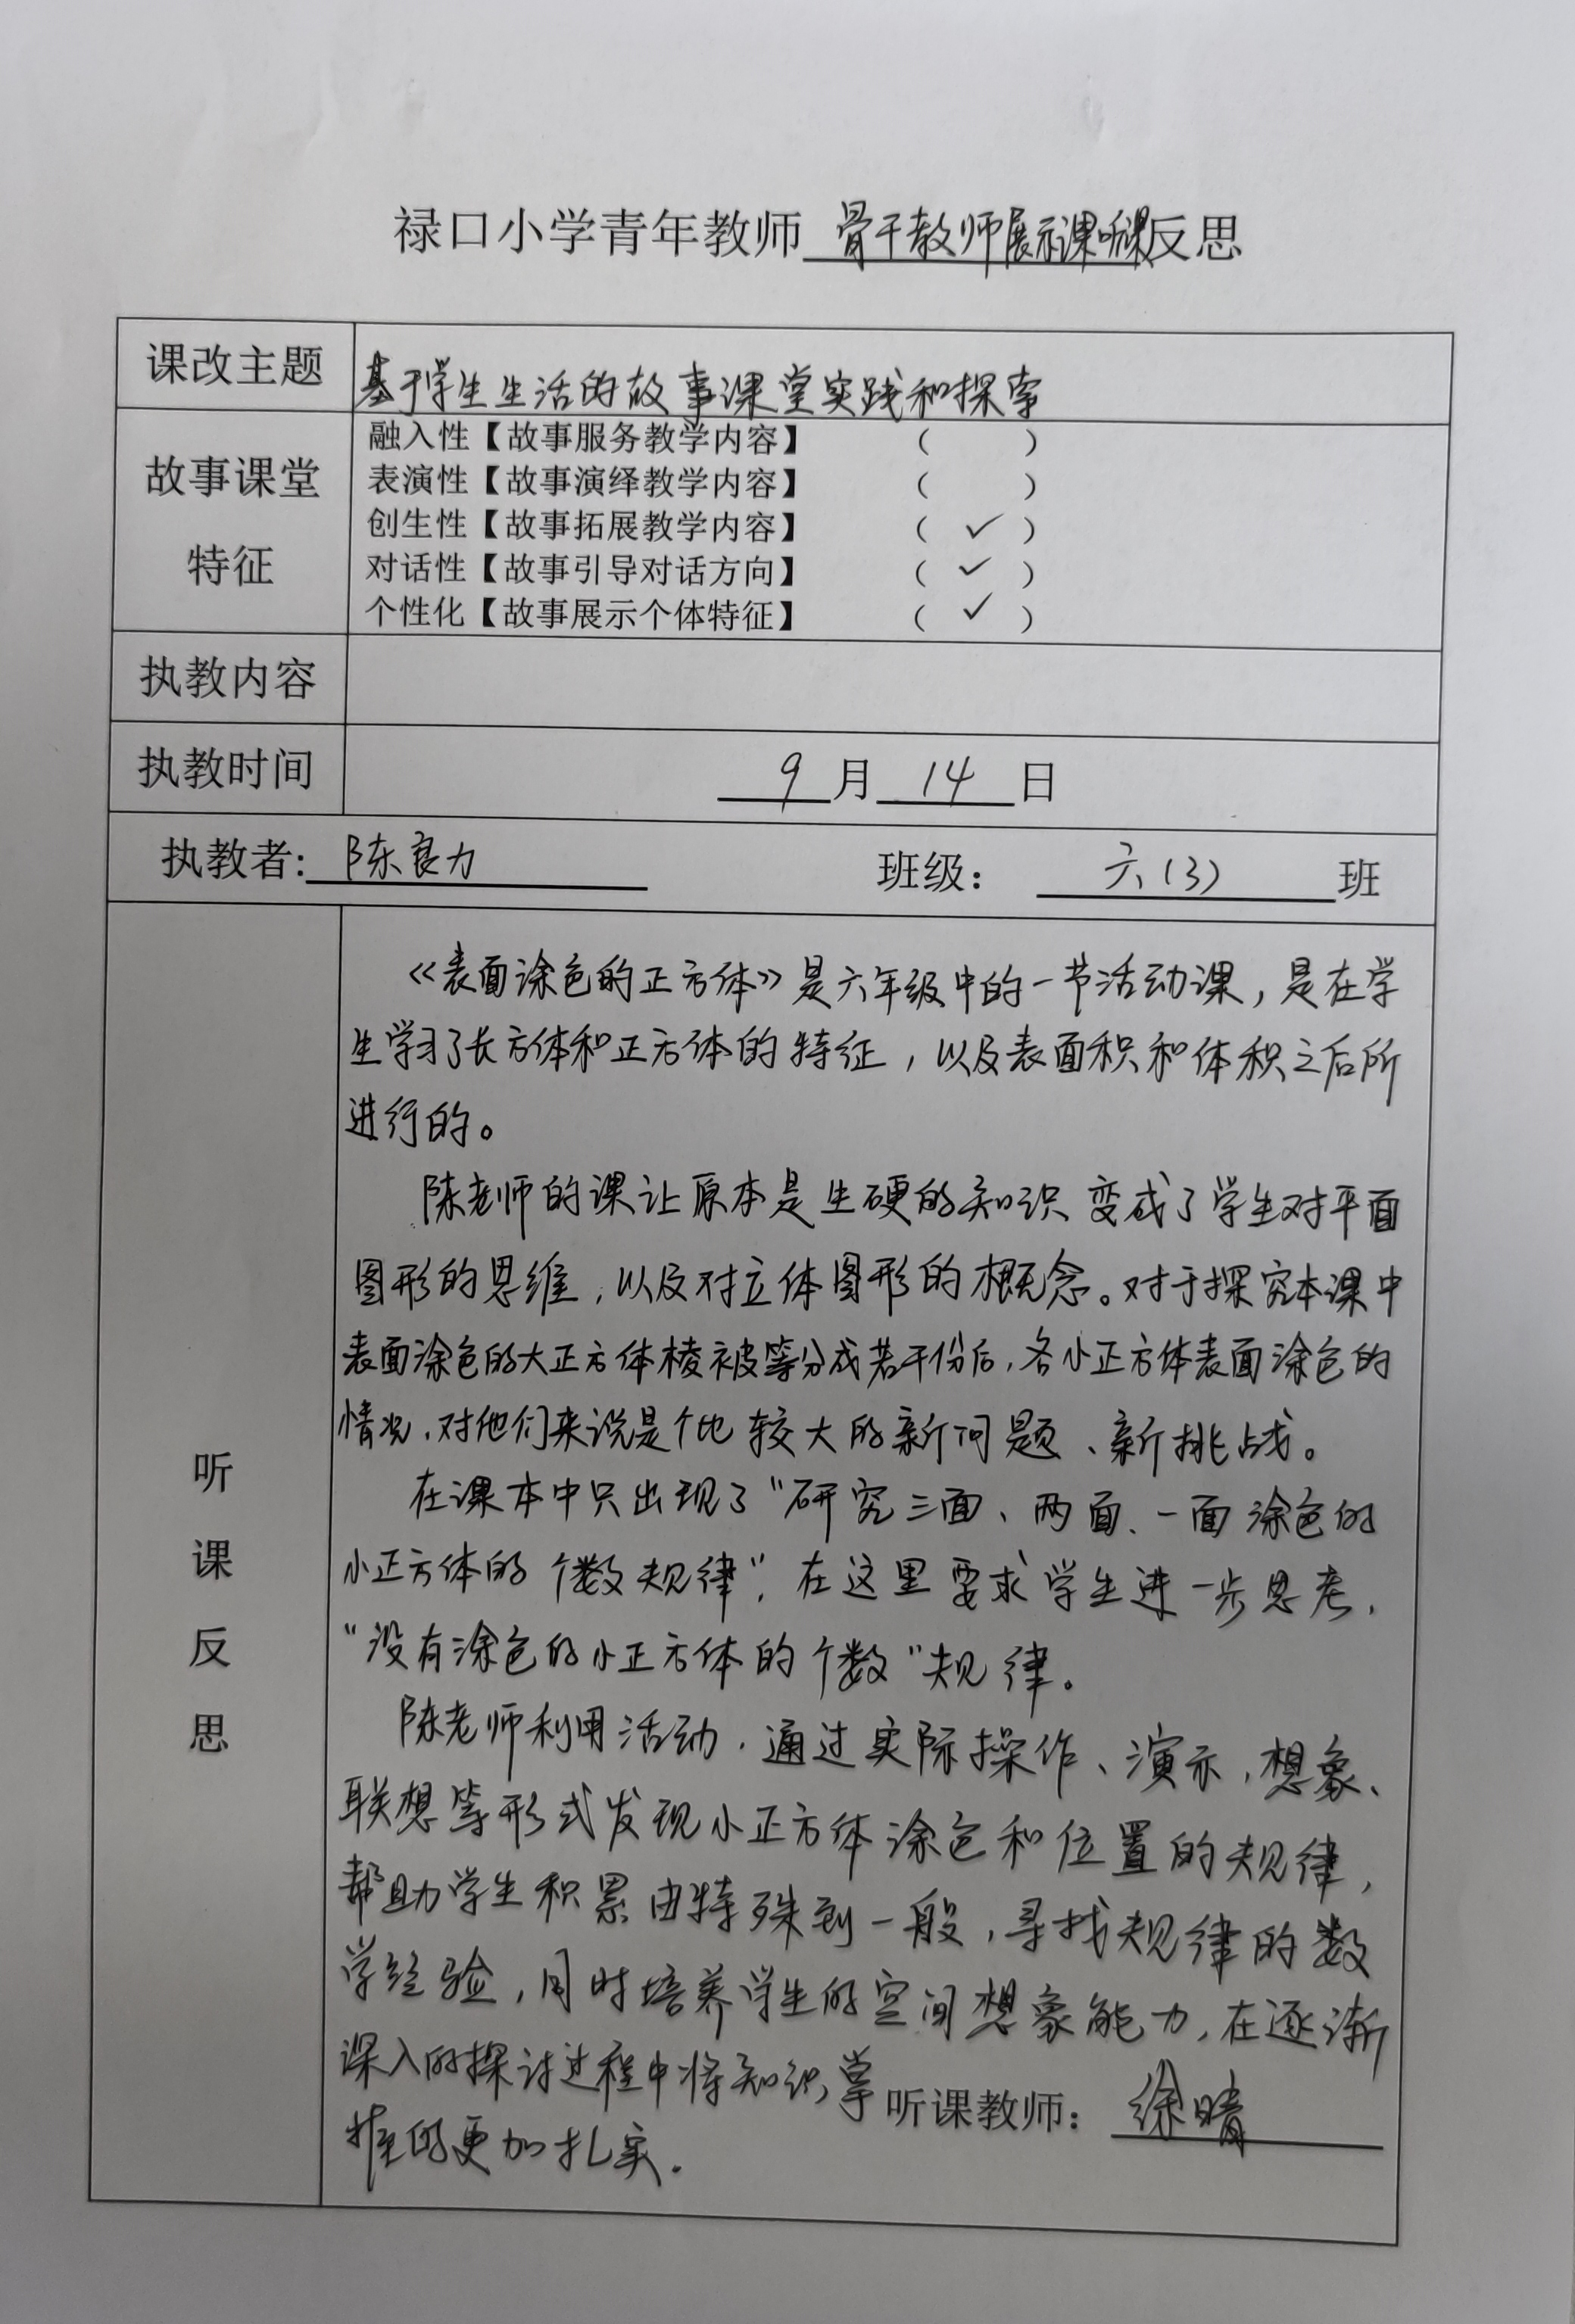 禄口小学青年教师 骨干教师展示课听课反思
课改主题 基于学生生活的故事课堂实践和探索
故事课堂
特征
融入性【故事服务教学内容】 （ ）
表演性【故事演绎教学内容】 （ ）
创生性【故事拓展教学内容】 （ ✓ ）
对话性【故事引导对话方向】 （ ✓ ）
个性化【故事展示个体特征】 （ ✓ ）
执教内容
执教时间 9月14日
执教者: 陈良力 班级： 六（3） 班
听课反思
《表面涂色的正方体》是六年级中的一节活动课，是在学
生学习了长方体和正方体的特征，以及表面积和体积之后所
进行的。
陈老师的课让原本是生硬的知识变成了学生对平面
图形的思维，以及对立体图形的概念。对于探究本课中
表面涂色的大正方体棱被等分成若干份后，各小正方体表面涂色的
情况，对他们来说是个比较大的新问题、新挑战。
在课本中只出现了“研究三面、两面、一面涂色的
小正方体的个数规律”，在这里要求学生进一步思考，
“没有涂色的小正方体的个数”规律。
陈老师利用活动，通过实际操作、演示，想象、
联想等形式发现小正方体涂色和位置的规律，
帮助学生积累由特殊到一般，寻找规律的数
学经验，同时培养学生的空间想象能力，在逐渐
深入的探讨过程中将知识掌
握的更加扎实.
听课教师： 徐晴